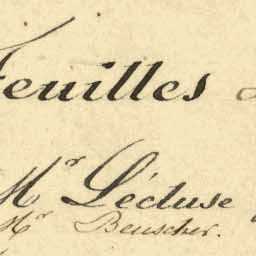 Feuilles
Mr Lécluse
Mr Beuscher.